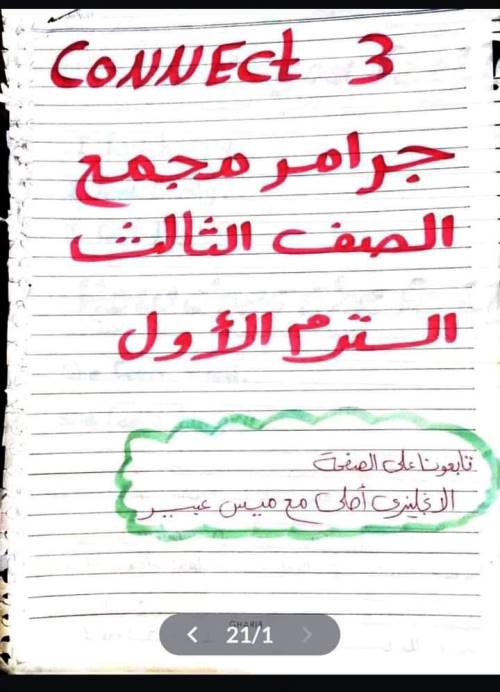 CONNECt 3
جرامر مجمع
الصف الثالث
الترم الأول
تابعونا على الصفحة
الانجليزى أحلى مع ميس عبير
21/1